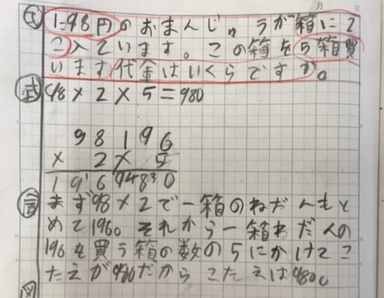 文 1こ98円のおまんじゅうが1箱に2
こ入っています。この箱を5箱買
います。代金はいくらですか。
式 98×2×5=980
98 196
×2 ×5
196 980
言 まず98×2で一箱のねだんをもと
めて196。それから一箱ねだんの
196を買う箱の数の5にかけてこ
たえが980だからこたえは980。
図